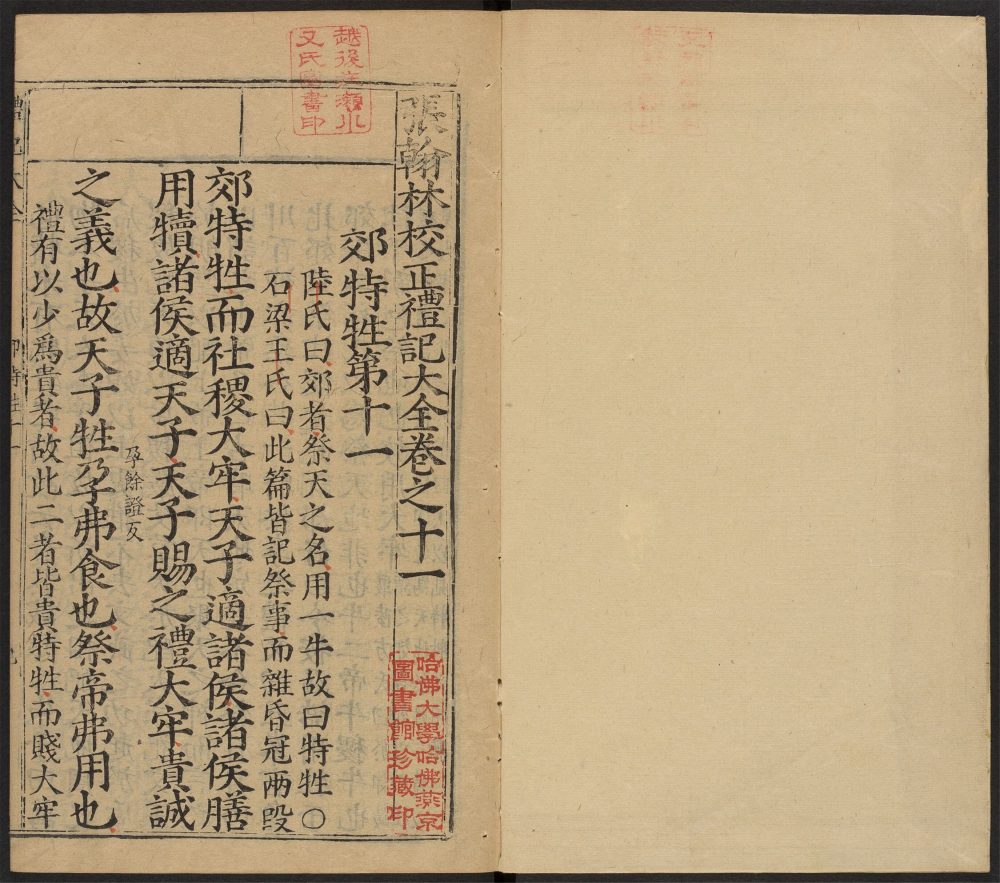 張翰林校正禮記大全卷之十一
郊特牲第十一
陸氏曰郊者祭天之名用一牛故曰特牲○
石梁王氏曰此篇皆記祭事而雜昏冠兩段
郊特牲而社稷大牢天子適諸侯諸侯膳
用犢諸侯適天子天子賜之禮大牢貴誠
之義也故天子牲孕弗食也祭帝弗用也
孕餘證反
禮有以少爲貴者故此二者皆貴特牲而賤大牢
哈佛大學哈佛燕京
圖書館珍藏印